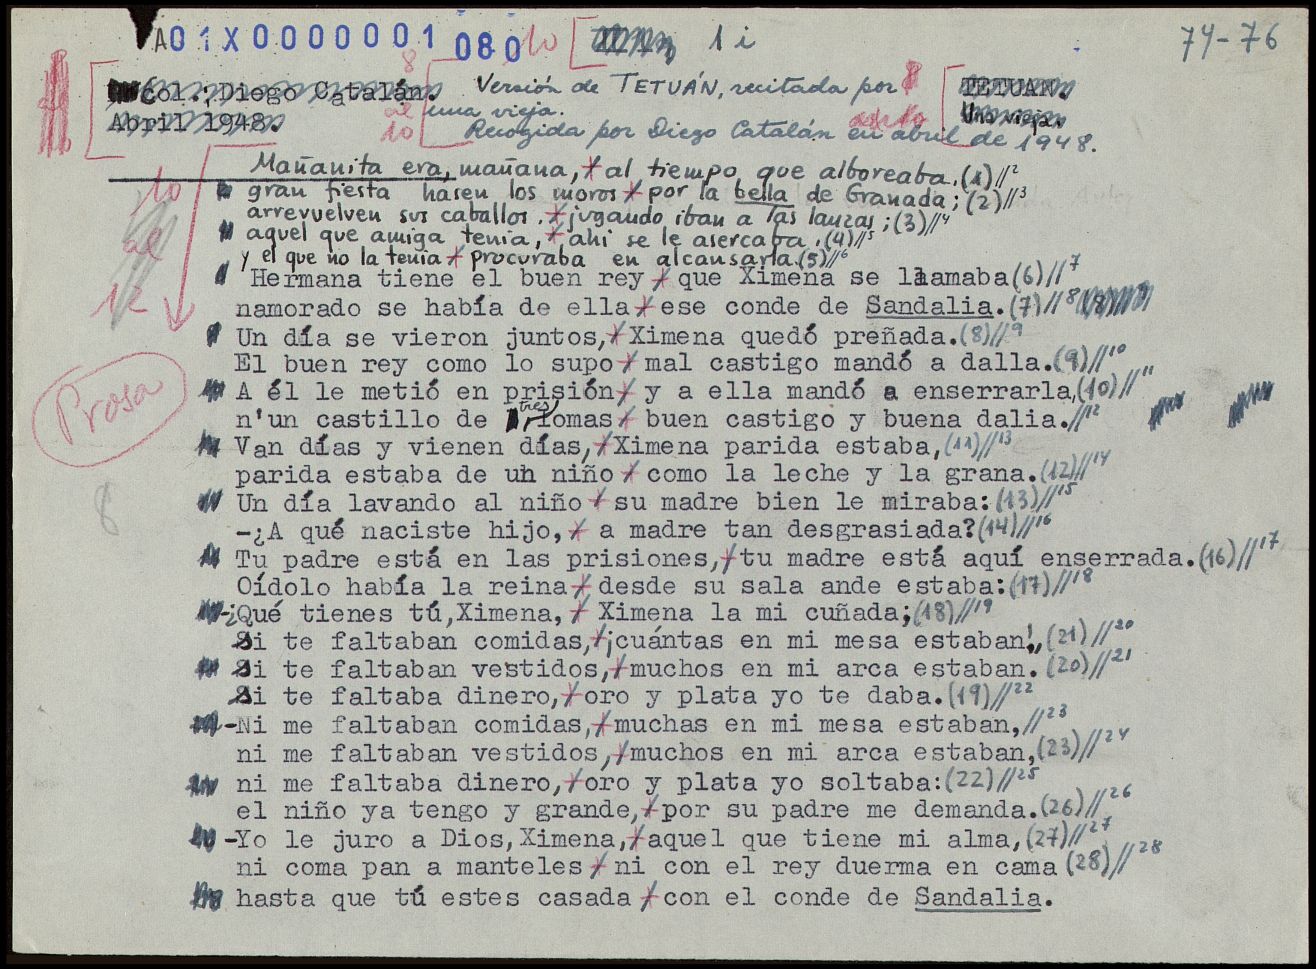 A01X00000001 080 10 1 i 74-76
8
Col.; Diego Catalán. Versión de TETUÁN, recitada por 8 TETUAN.
al una vieja. Una vieja.
Abril 1948. 10 Recogida por Diego Catalán en abril de 1948.
Mañanita era, mañana, al tiempo que alboreaba, (1)//2
10 gran fiesta hasen los moros por la bella de Granada; (2)//3
arrevuelven sus caballos. jugando iban a las lanzas; (3)//4
al aquel que amiga tenia, ahi se le asercaba. (4)//5
y el que no la tenia procuraba en alcansarla. (5)//6
12 Hermana tiene el buen rey que Ximena se llamaba (6)//7
namorado se había de ella ese conde de Sandalia. (7)//8
Un día se vieron juntos, Ximena quedó preñada. (8)//9
El buen rey como lo supo mal castigo mandó a dalla. (9)//10
Prosa A él le metió en prisión y a ella mandó a enserrarla, (10)//11
n'un castillo de tres lomas buen castigo y buena dalia. //12
Van días y vienen días, Ximena parida estaba, (11)//13
parida estaba de un niño como la leche y la grana. (12)//14
8 Un día lavando al niño su madre bien le miraba: (13)//15
-¿A qué naciste hijo, a madre tan desgrasiada? (14)//16
Tu padre está en las prisiones, tu madre está aquí enserrada. (16)//17
Oídolo había la reina desde su sala ande estaba: (17)//18
-¿Qué tienes tú, Ximena, Ximena la mi cuñada; (18)//19
Si te faltaban comidas, ¡cuántas en mi mesa estaban!, (21)//20
Si te faltaban vestidos, muchos en mi arca estaban. (20)//21
Si te faltaba dinero, oro y plata yo te daba. (19)//22
-Ni me faltaban comidas, muchas en mi mesa estaban, //23
ni me faltaban vestidos, muchos en mi arca estaban, (23)//24
ni me faltaba dinero, oro y plata yo soltaba: (22)//25
el niño ya tengo y grande, por su padre me demanda. (26)//26
-Yo le juro a Dios, Ximena, aquel que tiene mi alma, (27)//27
ni coma pan a manteles ni con el rey duerma en cama (28)//28
hasta que tú estes casada con el conde de Sandalia.